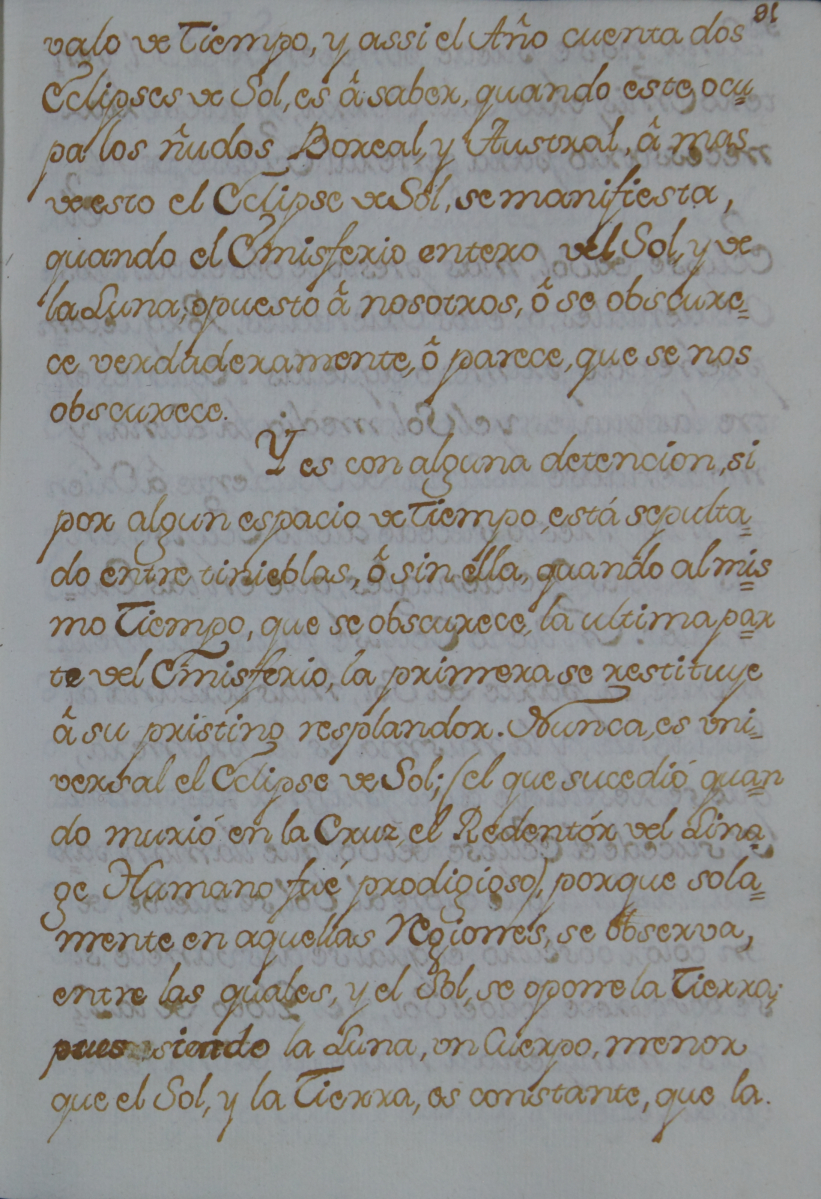 91
valo de Tiempo, y assi el Año cuenta dos
Eclipses de Sol, es â saber, quando este ocu=
pa los ñudos Boreal, y Austral, â mas
de esto el Eclipse de Sol, se manifiesta,
quando el Emisferio entero del Sol, y de
la Luna, opuesto â nosotros, ô se obscure=
ce verdaderamente, ô parece, que se nos
obscurece.
Y es con alguna detencion, si
por algun espacio de Tiempo está sepulta=
do entre tinieblas, ô sin ella, quando al mis=
mo Tiempo, que se obscurece, la ultima par=
te del Emisferio, la primera se restituye
â su pristino resplandor. Nunca, es vni=
versal el Eclipse de Sol; (el que sucedió quan=
do murió en la Cruz el Redentór del Lina=
ge Humano fue prodigioso) porque sola=
mente en aquellas Regiones, se observa,
entre las quales, y el Sol, se opone la Tierra;
pues siendo la Luna, vn Cuerpo, menor
que el Sol, y la Tierra, es constante, que la